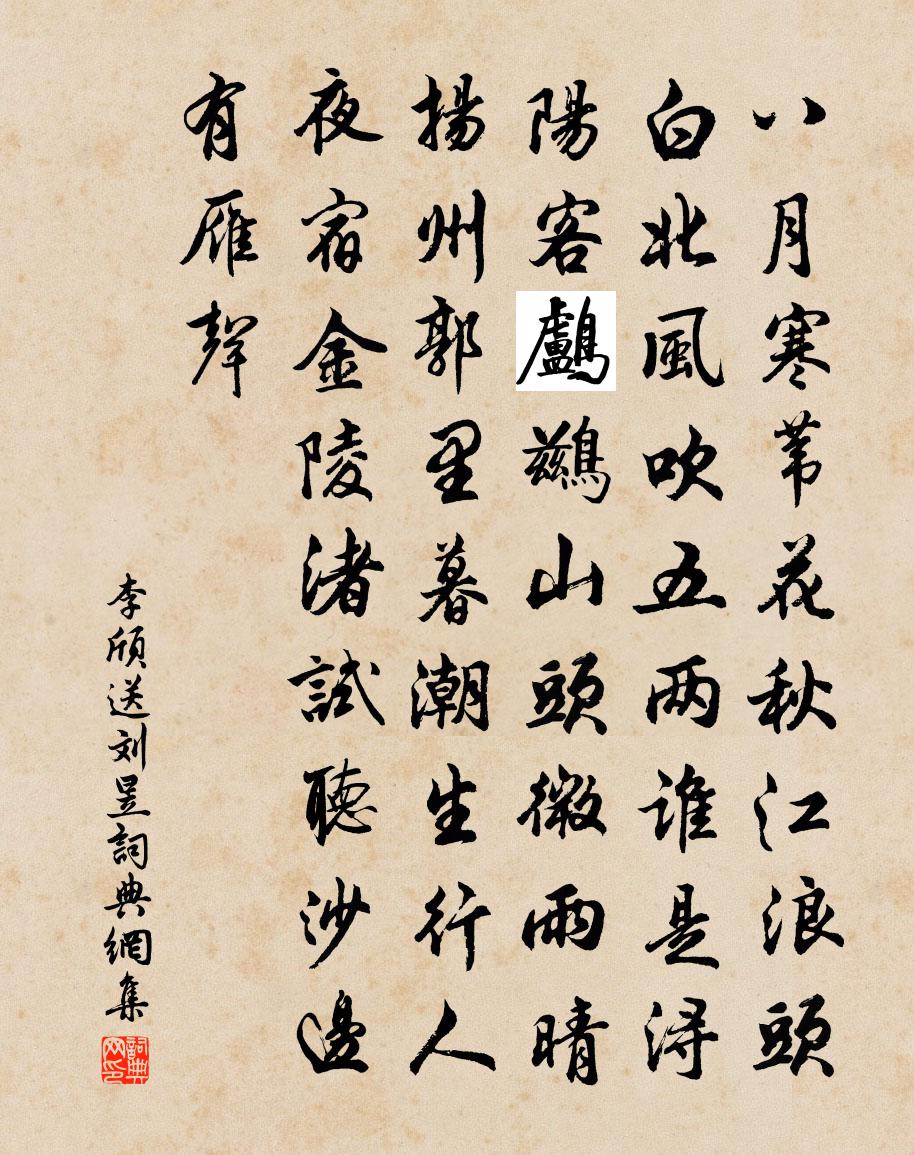 八月寒葦花秋江浪頭
白北風吹五两誰是潯
陽客鸕鷀山頭微雨晴
揚州郭里暮潮生行人
夜宿金陵渚試聽沙邊
有雁聲
李頎送刘昱詞典網集
詞典网印